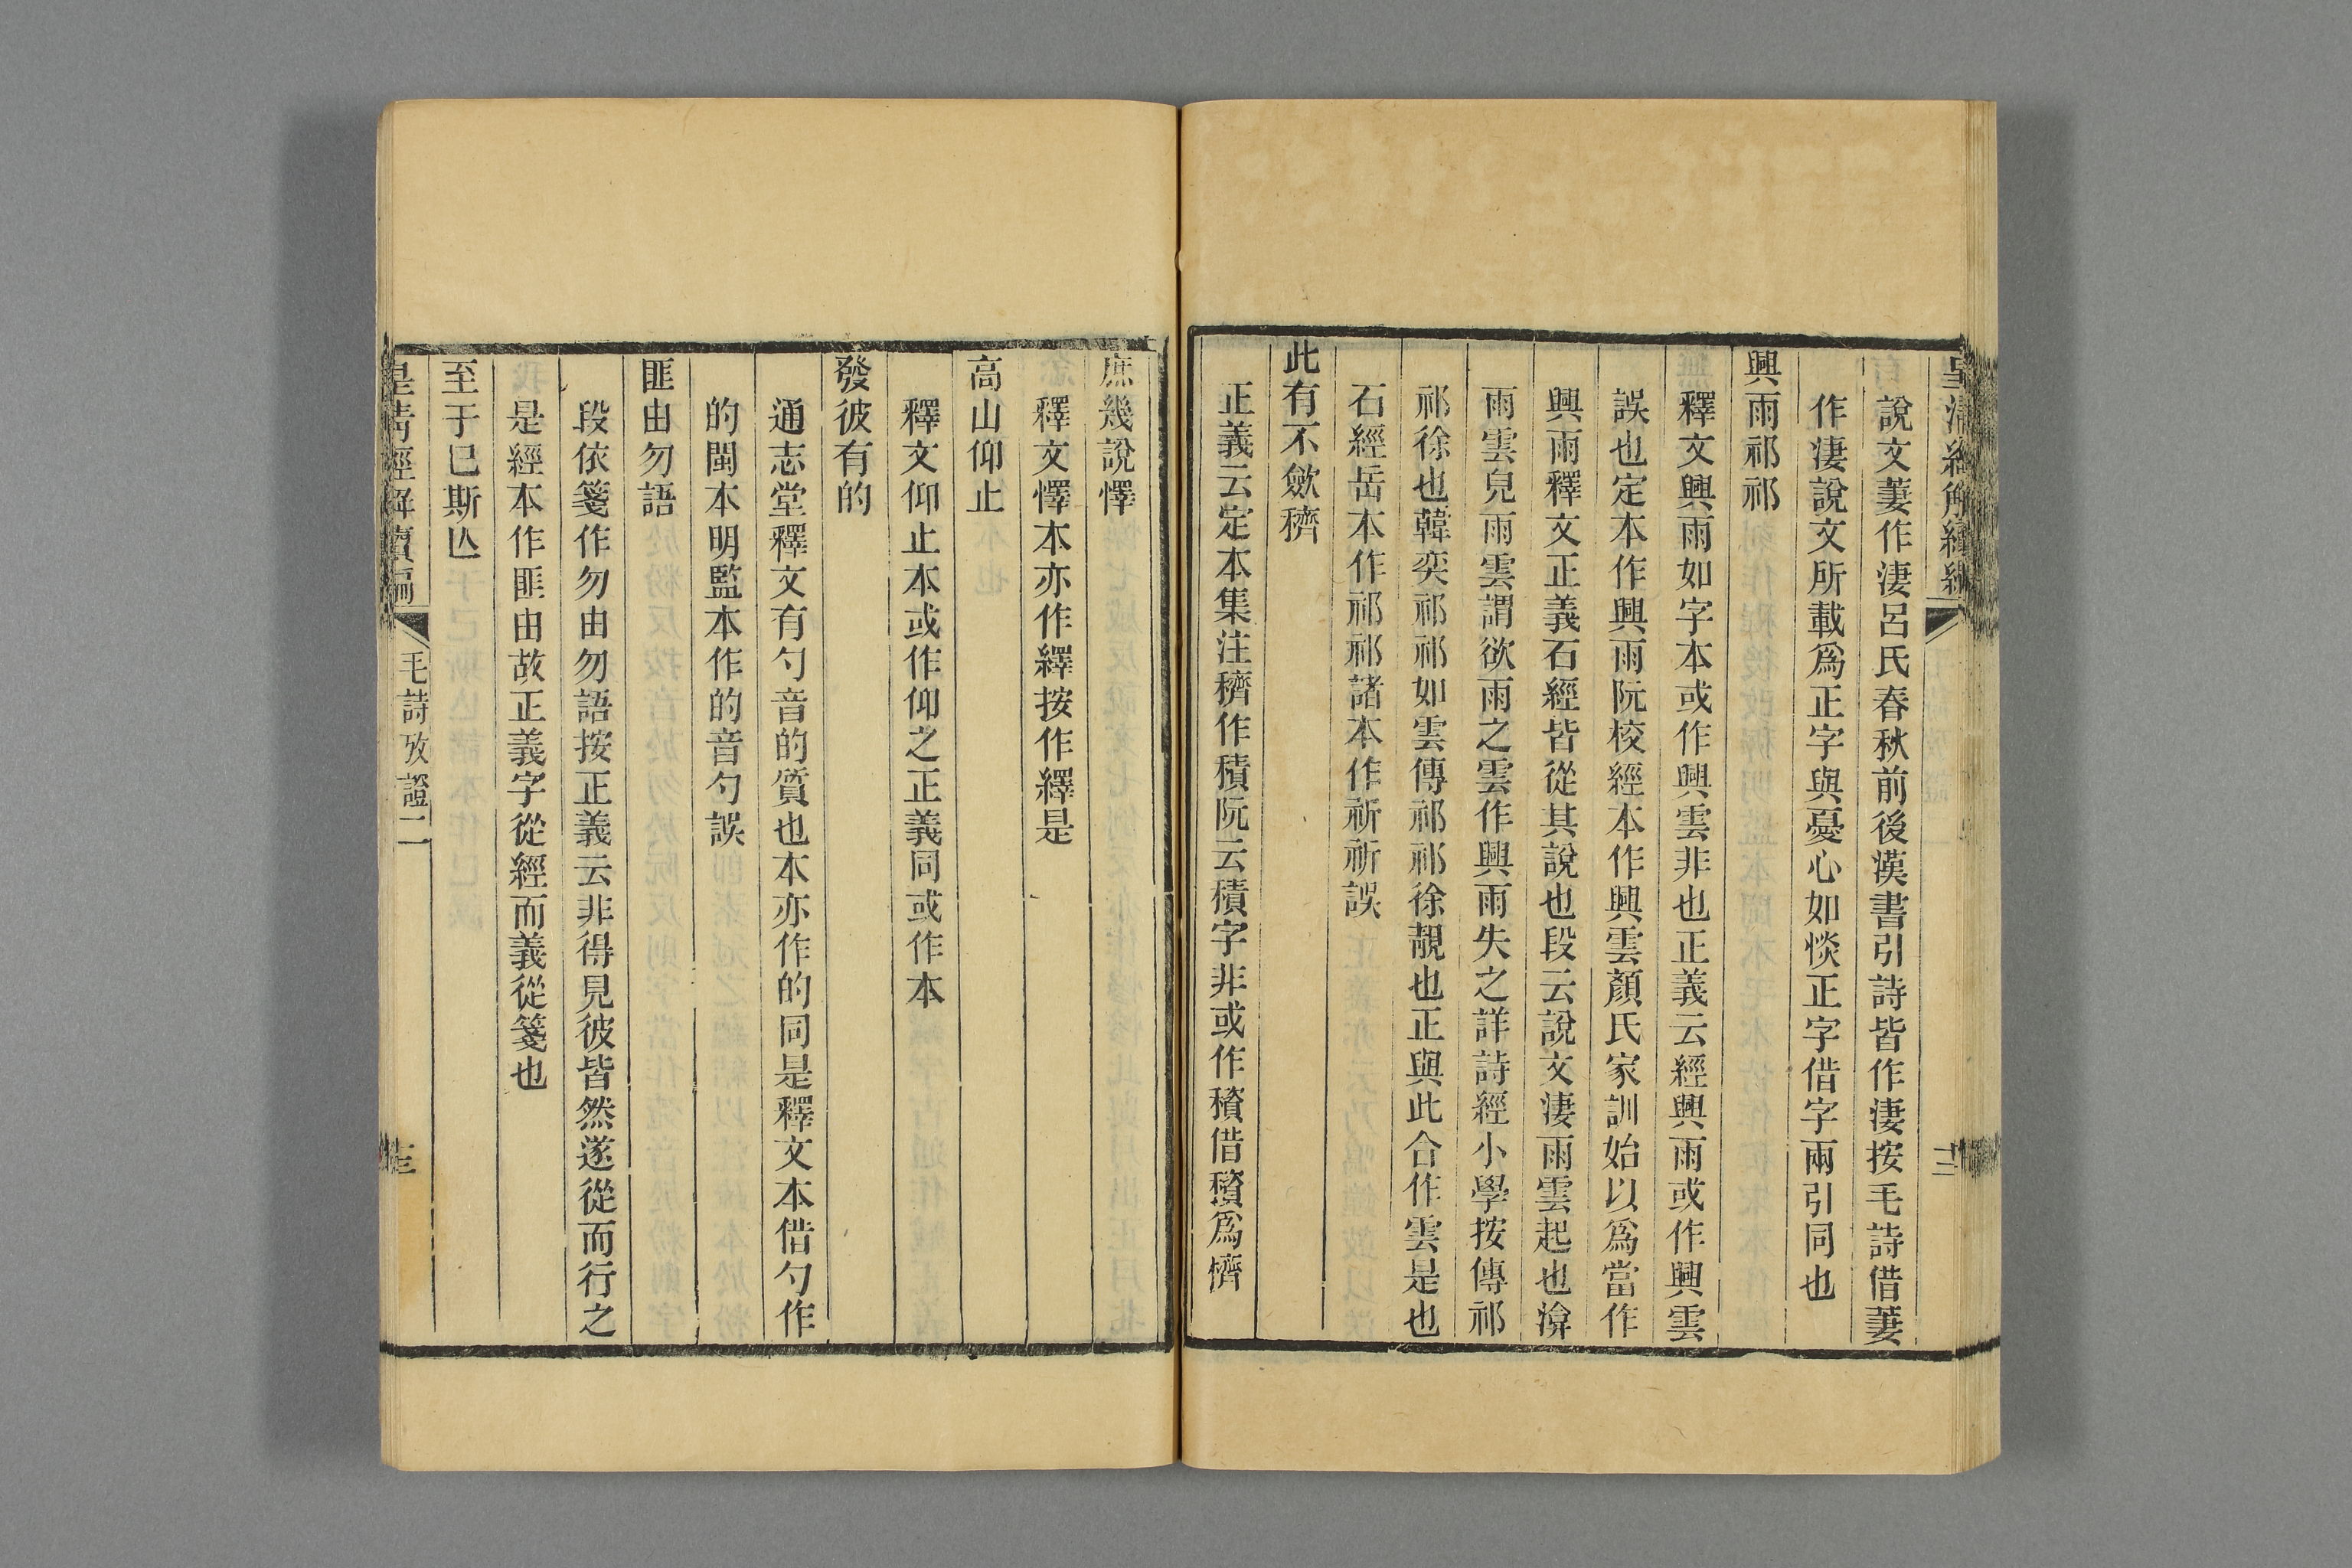 說文萋作淒呂氏春秋前後漢書引詩皆作淒按毛詩借萋
作淒說文所載爲正字與憂心如惔正字借字兩引同也
興雨祁祁
釋文興雨如字本或作興雲非也正義云經興雨或作興雲
誤也定本作興雨阮校經本作興雲顏氏家訓始以爲當作
興雨釋文正義石經皆從其說也段云說文淒雨雲起也渰
雨雲皃雨雲謂欲雨之雲作興雨失之詳詩經小學按傳祁
祁徐也韓奕祁祁如雲傳祁祁徐靚也正與此合作雲是也
石經岳本作祁祁諸本作祈祈誤
此有不斂穧
正義云定本集注穧作積阮云積字非或作穦借穦爲懠
庶幾說懌
釋文懌本亦作繹按作繹是
高山仰止
釋文仰止本或作仰之正義同或作本
發彼有的
通志堂釋文有勺音的質也本亦作的同是釋文本借勺作
的閩本明監本作的音勺誤
匪由勿語
段依箋作勿由勿語按正義云非得見彼皆然遂從而行之
是經本作匪由故正義字從經而義從箋也
至于巳斯亾
皇清經解續編
毛詩攷證二